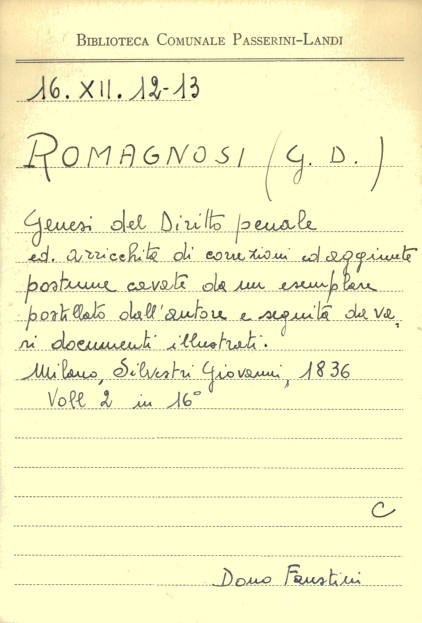 BIBLIOTECA COMUNALE PASSERINI-LANDI
16. XII. 12-13
ROMAGNOSI (G. D.)
Genesi del Diritto penale
ed. arricchita di correzioni ed aggiunte
postume cavate da un esemplare
postillato dall'autore e seguita da va,
ri documenti illustrati.
Milano, Silvestri Giovanni, 1836
Voll 2 in 16°
C
Dono Faustini